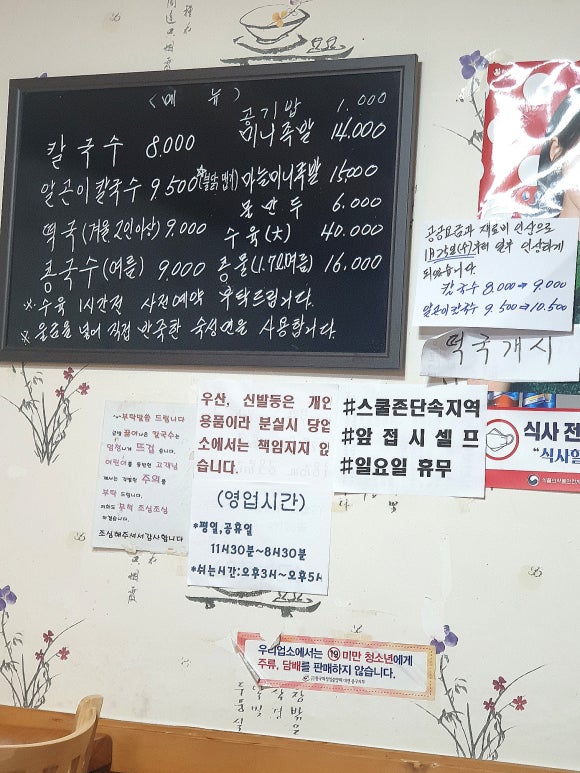 〈메 뉴〉
칼국수 8.000
알곤이칼국수 9.500 (불닭맵기)
떡국(겨울 2인이상) 9.000
콩국수(여름) 9.000
공기밥 1.000
미니족발 14.000
마늘미니족발 15.000
물만두 6.000
수육(大) 40.000
콩물(1.7ℓ여름) 16.000
※수육 1시간전 사전예약 부탁드립니다.
※울금을 넣어 직접 반죽한 숙성면을 사용합니다.
공공요금과 재료비 인상으로
1月25일(수)부터 일부 인상하게
되었습니다.
칼국수 8.000⇒9.000
알곤이칼국수 9.500⇒10.500
떡국개시
부탁말씀 드립니다
금방 끓여나온 칼국수는
엄청나게 뜨겁습니다.
어린이를 동반한 고객님
께서는 각별한 주의를
부탁 드립니다.
뜨거움 무척 조심조심
하겠습니다.
조심해주셔서 감사합니다
우산, 신발등은 개인
용품이라 분실시 당업
소에서는 책임지지 않
습니다.
(영업시간)
*평일,공휴일
11시30분~8시30분
*쉬는시간:오후3시~오후5시
#스쿨존단속지역
#앞접시셀프
#일요일 휴무
식사 전
"식사할
우리업소에서는 19 미만 청소년에게
주류, 담배를 판매하지 않습니다.